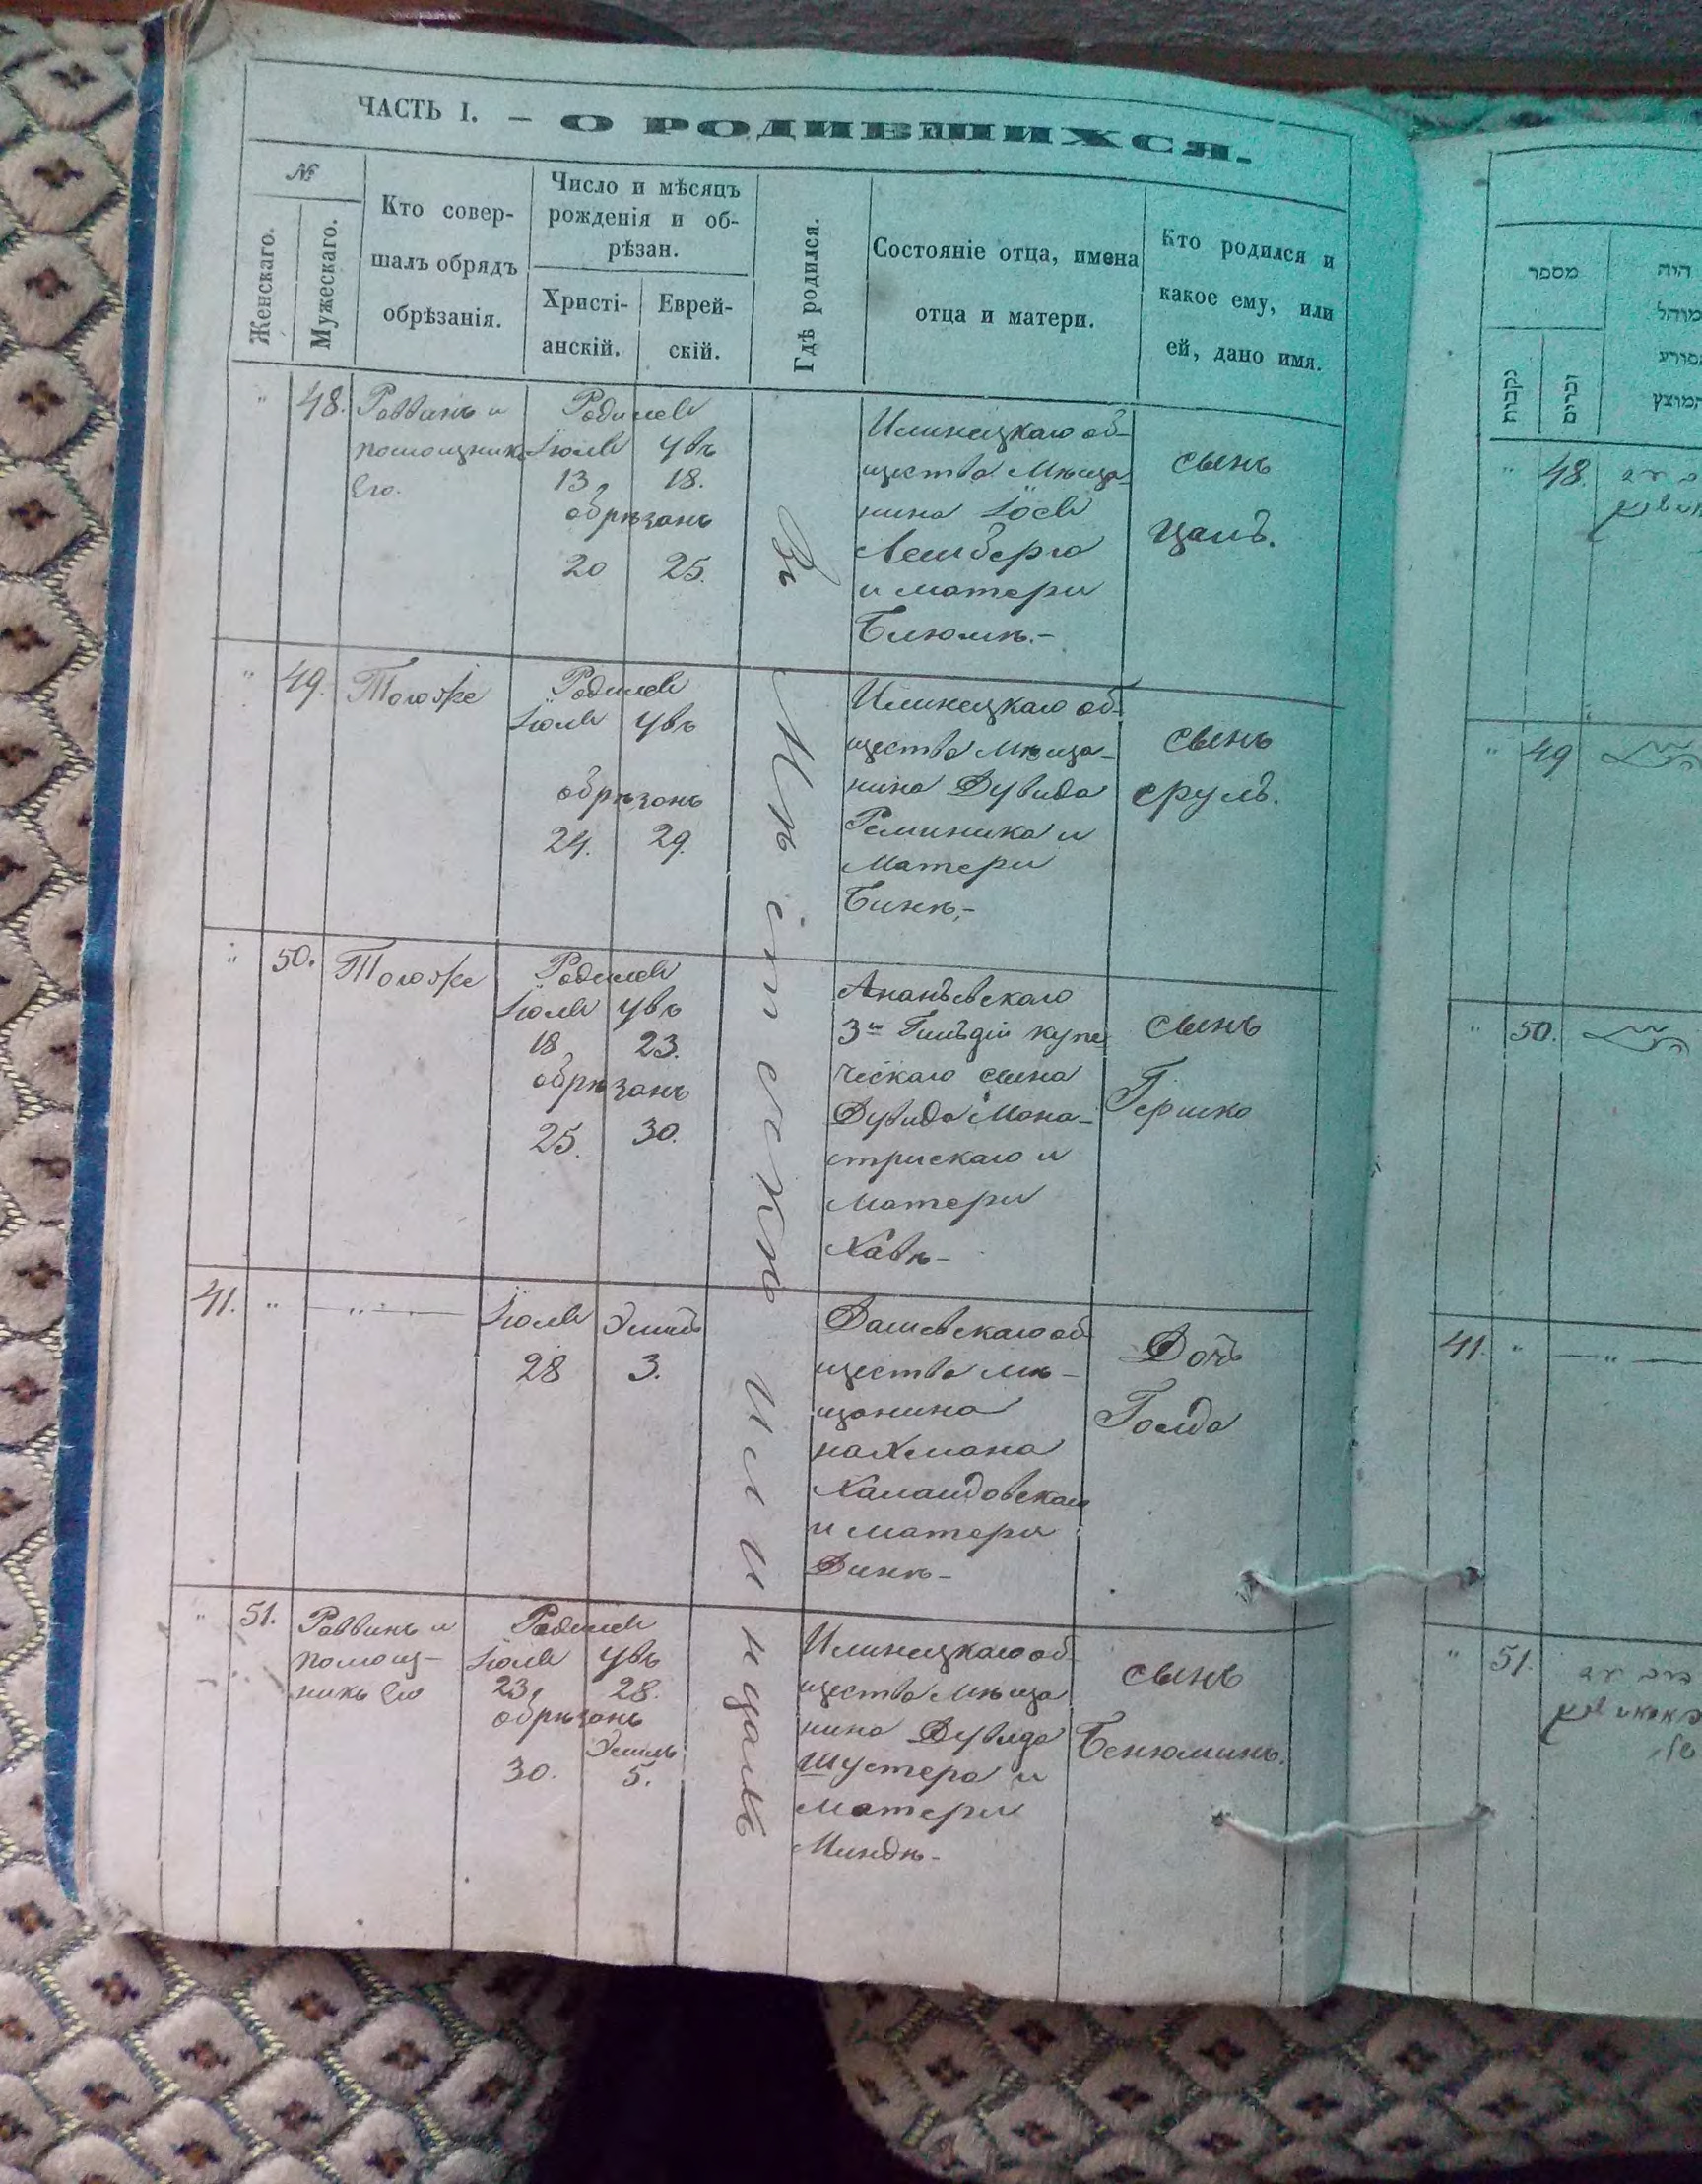 ЧАСТЬ I. — О РОДИВШИХСЯ.
№
Женскаго.
Мужескаго.
Кто совер-
шалъ обрядъ
обрѣзанія.
Число и мѣсяцъ
рожденія и об-
рѣзан.
Христі-
анскій.
Еврей-
скій.
Гдѣ родился.
Состояніе отца, имена
отца и матери.
Кто родился и
какое ему, или
ей, дано имя.
Въ Мѣстечкѣ Илинцахъ
" 48.
Раввинъ и
помощникъ
Его.
Родился
Іюля увъ
13, 18.
обрѣзанъ
20 25.
Илинецкаго об-
щества Мѣща-
нина Іося
Лемберга
и матери
Блюмѣ.-
сынъ
цаль.
" 49.
Тогоже
Родился
Іюля увъ
обрѣзанъ
24. 29.
Илинецкаго об-
щества Мѣща-
нина Дувида
Реминика и
матери
Бинѣ,-
сынъ
сруль.
" 50.
Тогоже
Родился
Іюля увъ
18, 23.
обрѣзанъ
25. 30.
Ананьевскаго
3й Гильдіи купе
ческаго сына
Дувида Мона-
стрискаго и
матери
Хавѣ-
сынъ
Гершко
41. " — " —
Іюля Элиль
28 3.
Дашевскаго об
щества мѣ-
щанина
нахмана
Халаидовскаго
и матери
Динѣ-
Дочь
Голда
" 51.
Раввинъ и
помощ-
никъ Его
Родился
Іюля увъ
23, 28.
обрѣзанъ
Элиль
30. 5.
Илинецкаго об
щества Мѣща
нина Дувида
Шустера и
матери
Миндѣ-
сынъ
Бенюминъ.
מספר
היה
מוהל
נקבות
זכרים
" 48.
" 49
" 50.
41. " — " —
" 51.